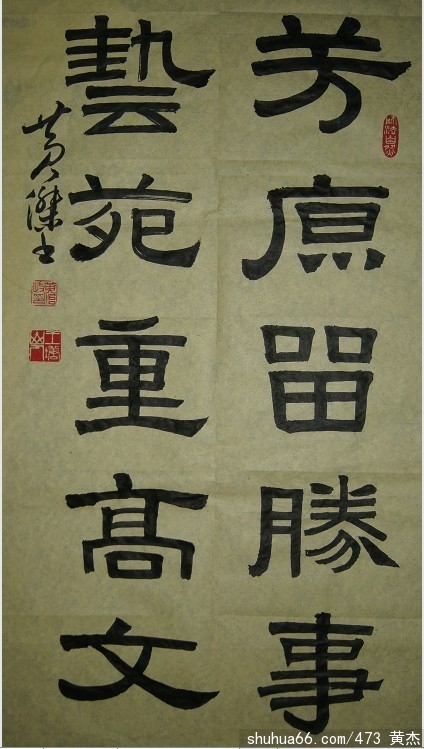 芳原留勝事
藝苑重髙文
黄傑书
shuhua66.com/473 黄杰